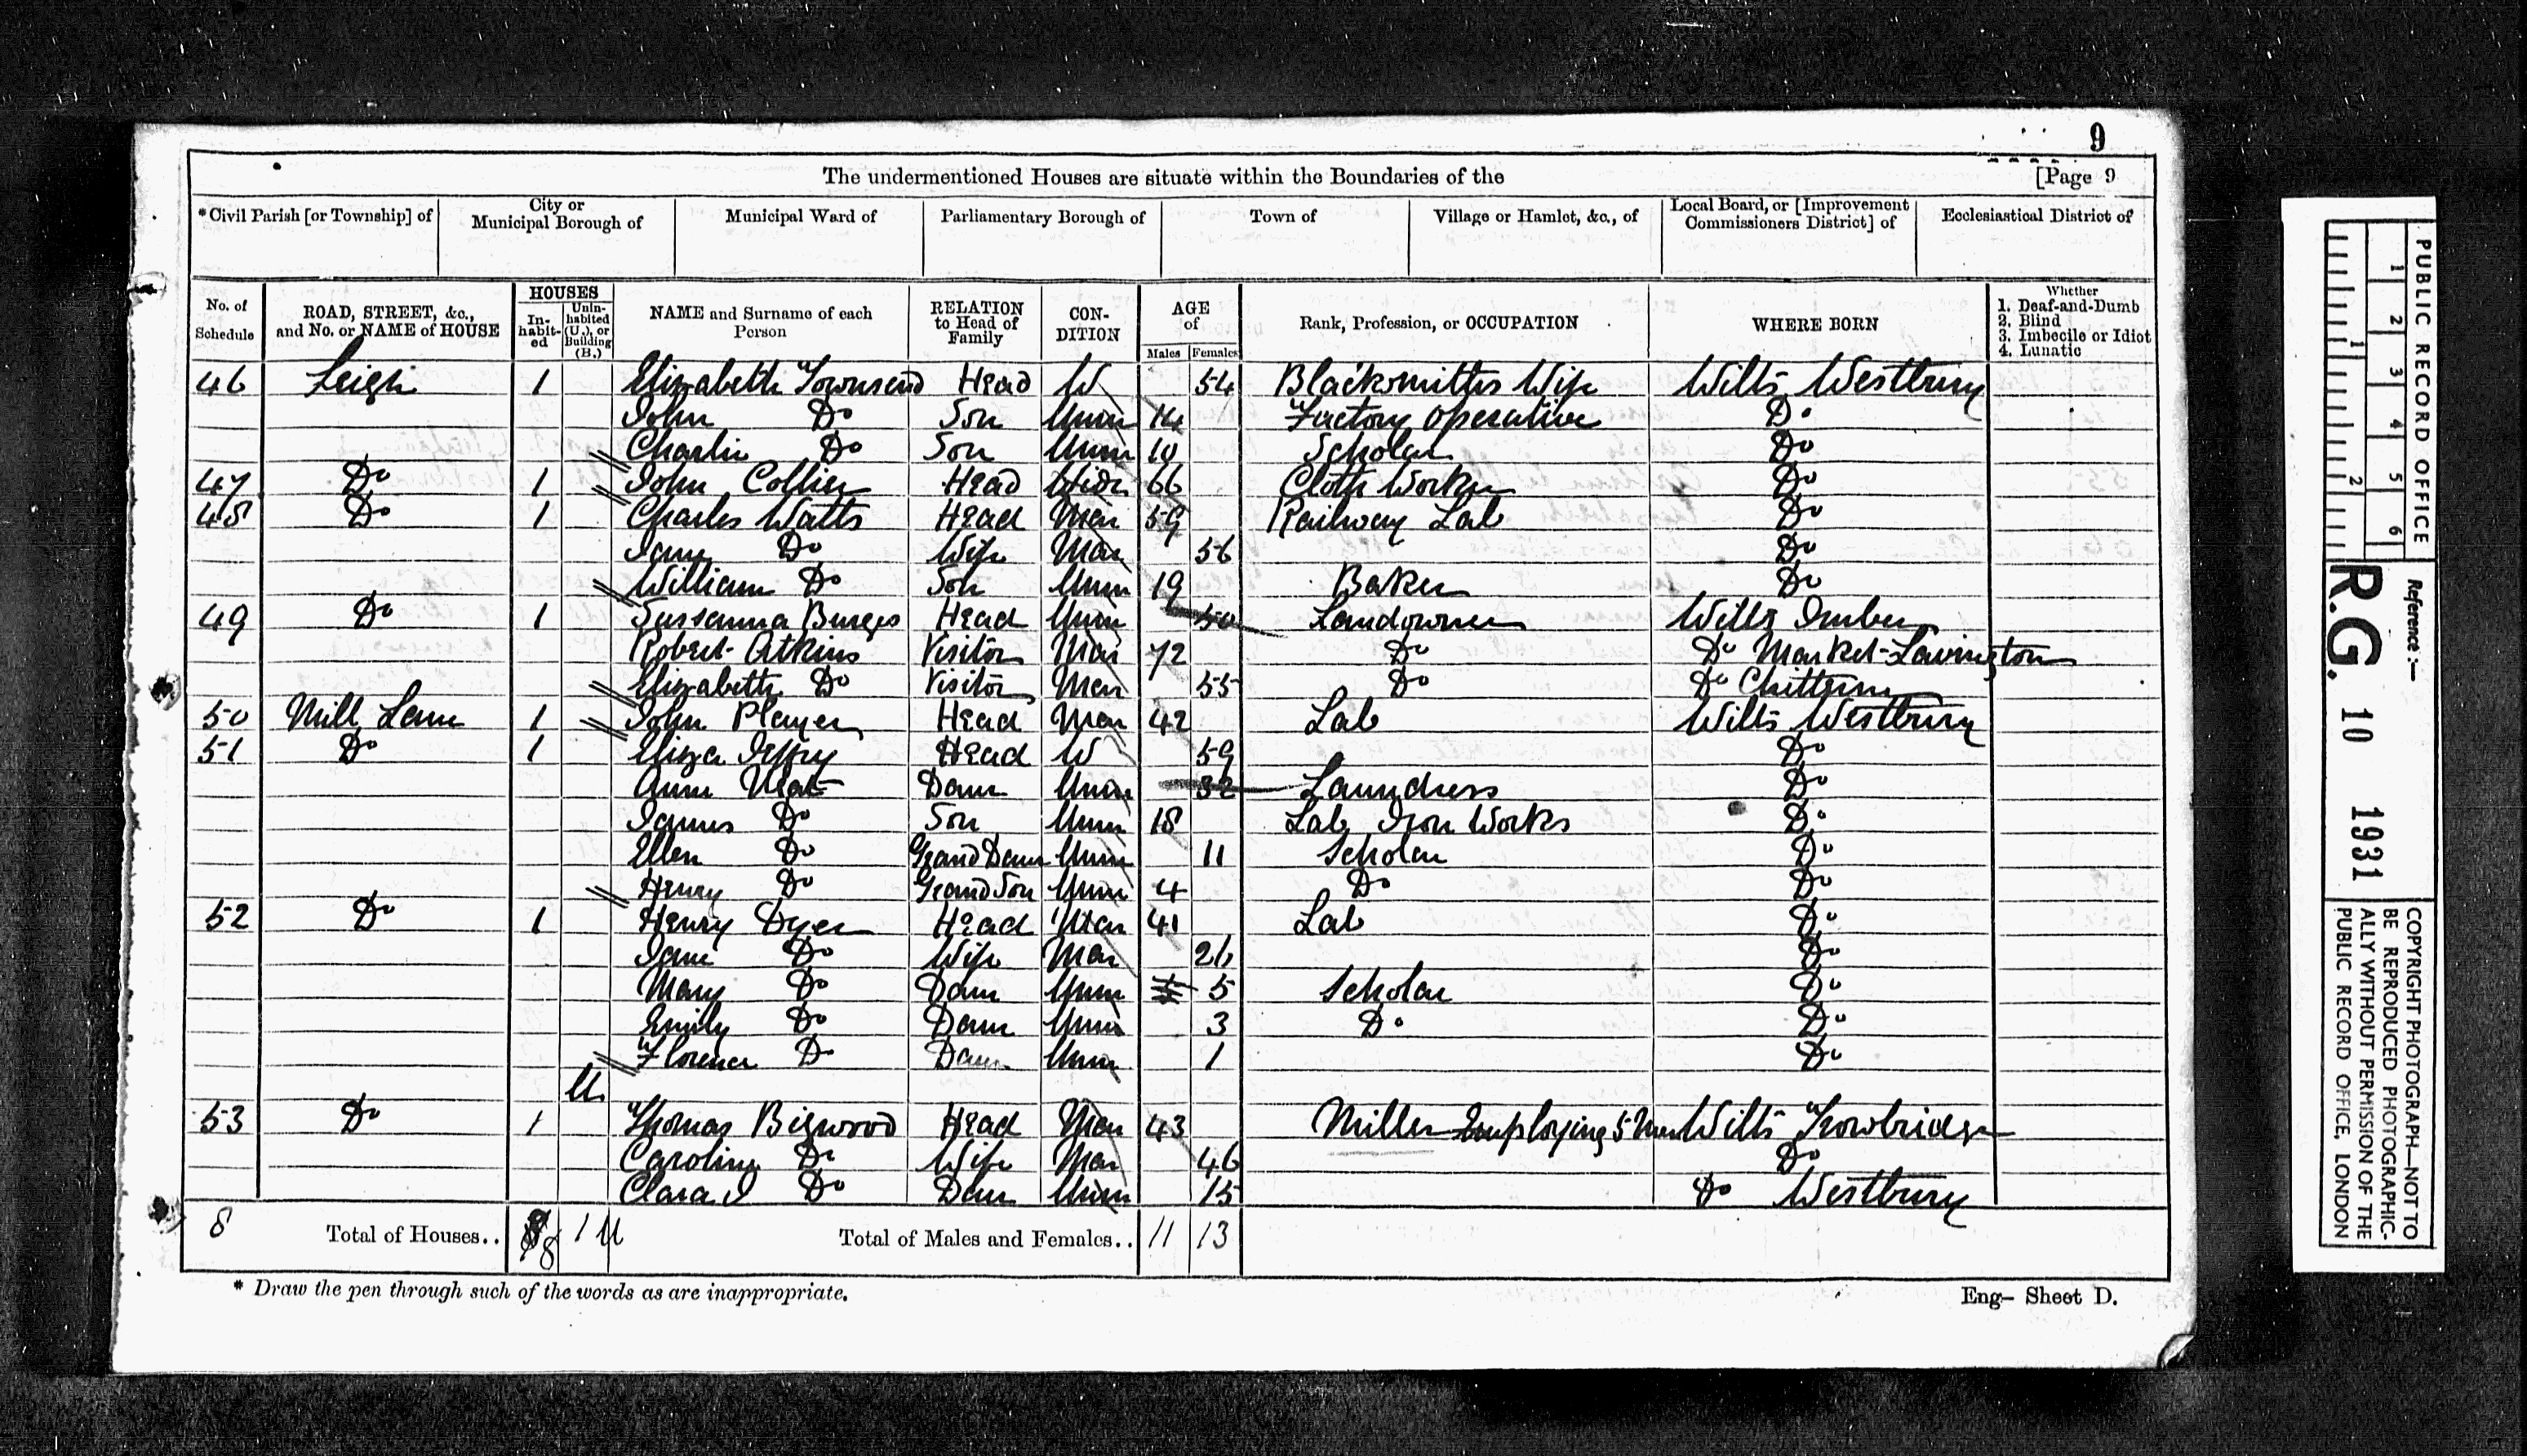 9
The undermentioned Houses are situate within the Boundaries of the [Page 9
*Civil Parish [or Township] of City or Municipal Borough of Municipal Ward of Parliamentary Borough of Town of Village or Hamlet, &c., of Local Board, or [Improvement Commissioners District] of Ecclesiastical District of
No. of Schedule ROAD, STREET, &c., and No. or NAME of HOUSE HOUSES In-habit-ed Unin-habited (U.), or Building (B.) NAME and Surname of each Person RELATION to Head of Family CON-DITION AGE of Males Females Rank, Profession, or OCCUPATION WHERE BORN Whether 1. Deaf-and-Dumb 2. Blind 3. Imbecile or Idiot 4. Lunatic
46 Leigh 1 Elizabeth Townsend Head W 54 Blacksmiths Wife Wilts Westbury
John Do Son Unm 14 Factory Operative Do
Charlie Do Son Unm 10 Scholar Do
47 Do 1 John Collier Head Widr 66 Cloth Worker Do
48 Do 1 Charles Watts Head Mar 59 Railway Lab Do
Jane Do Wife Mar 56 Do
William Do Son Unm 19 Baker Do
49 Do 1 Sussanna Burges Head Unm 50 Landowner Wilts Imber
Robert Atkins Visitor Mar 72 Do Do Market-Lavington
Elizabeth Do Visitor Mar 55 Do Do Chittern
50 Mill Lane 1 John Player Head Mar 42 Lab Wilts Westbury
51 Do 1 Eliza Jeffry Head W 59 Do
Ann Neat Daur Unm 32 Laundress Do
James Do Son Unm 18 Lab Iron Works Do
Ellen Do Grand Daur Unm 11 Scholar Do
Henry Do Grand Son Unm 4 Do Do
52 Do 1 Henry Dyer Head Mar 41 Lab Do
Jane Do Wife Mar 26 Do
Mary Do Daur Unm 5 Scholar Do
Emily Do Daur Unm 3 Do Do
Florence Do Daur Unm 1 Do
U
53 Do 1 Thomas Bigwood Head Mar 43 Miller Employing 5 Men Wilts Trowbridge
Caroline Do Wife Mar 46 Do
Clara J Do Daur Unm 15 Do Westbury
8 Total of Houses.. 8 1 U Total of Males and Females.. 11 13
* Draw the pen through such of the words as are inappropriate.
Eng- Sheet D.
PUBLIC RECORD OFFICE
1 2 3 4 5 6
1 2
Reference:-
R.G. 10 1931
COPYRIGHT PHOTOGRAPH-NOT TO
BE REPRODUCED PHOTOGRAPHIC-
ALLY WITHOUT PERMISSION OF THE
PUBLIC RECORD OFFICE, LONDON